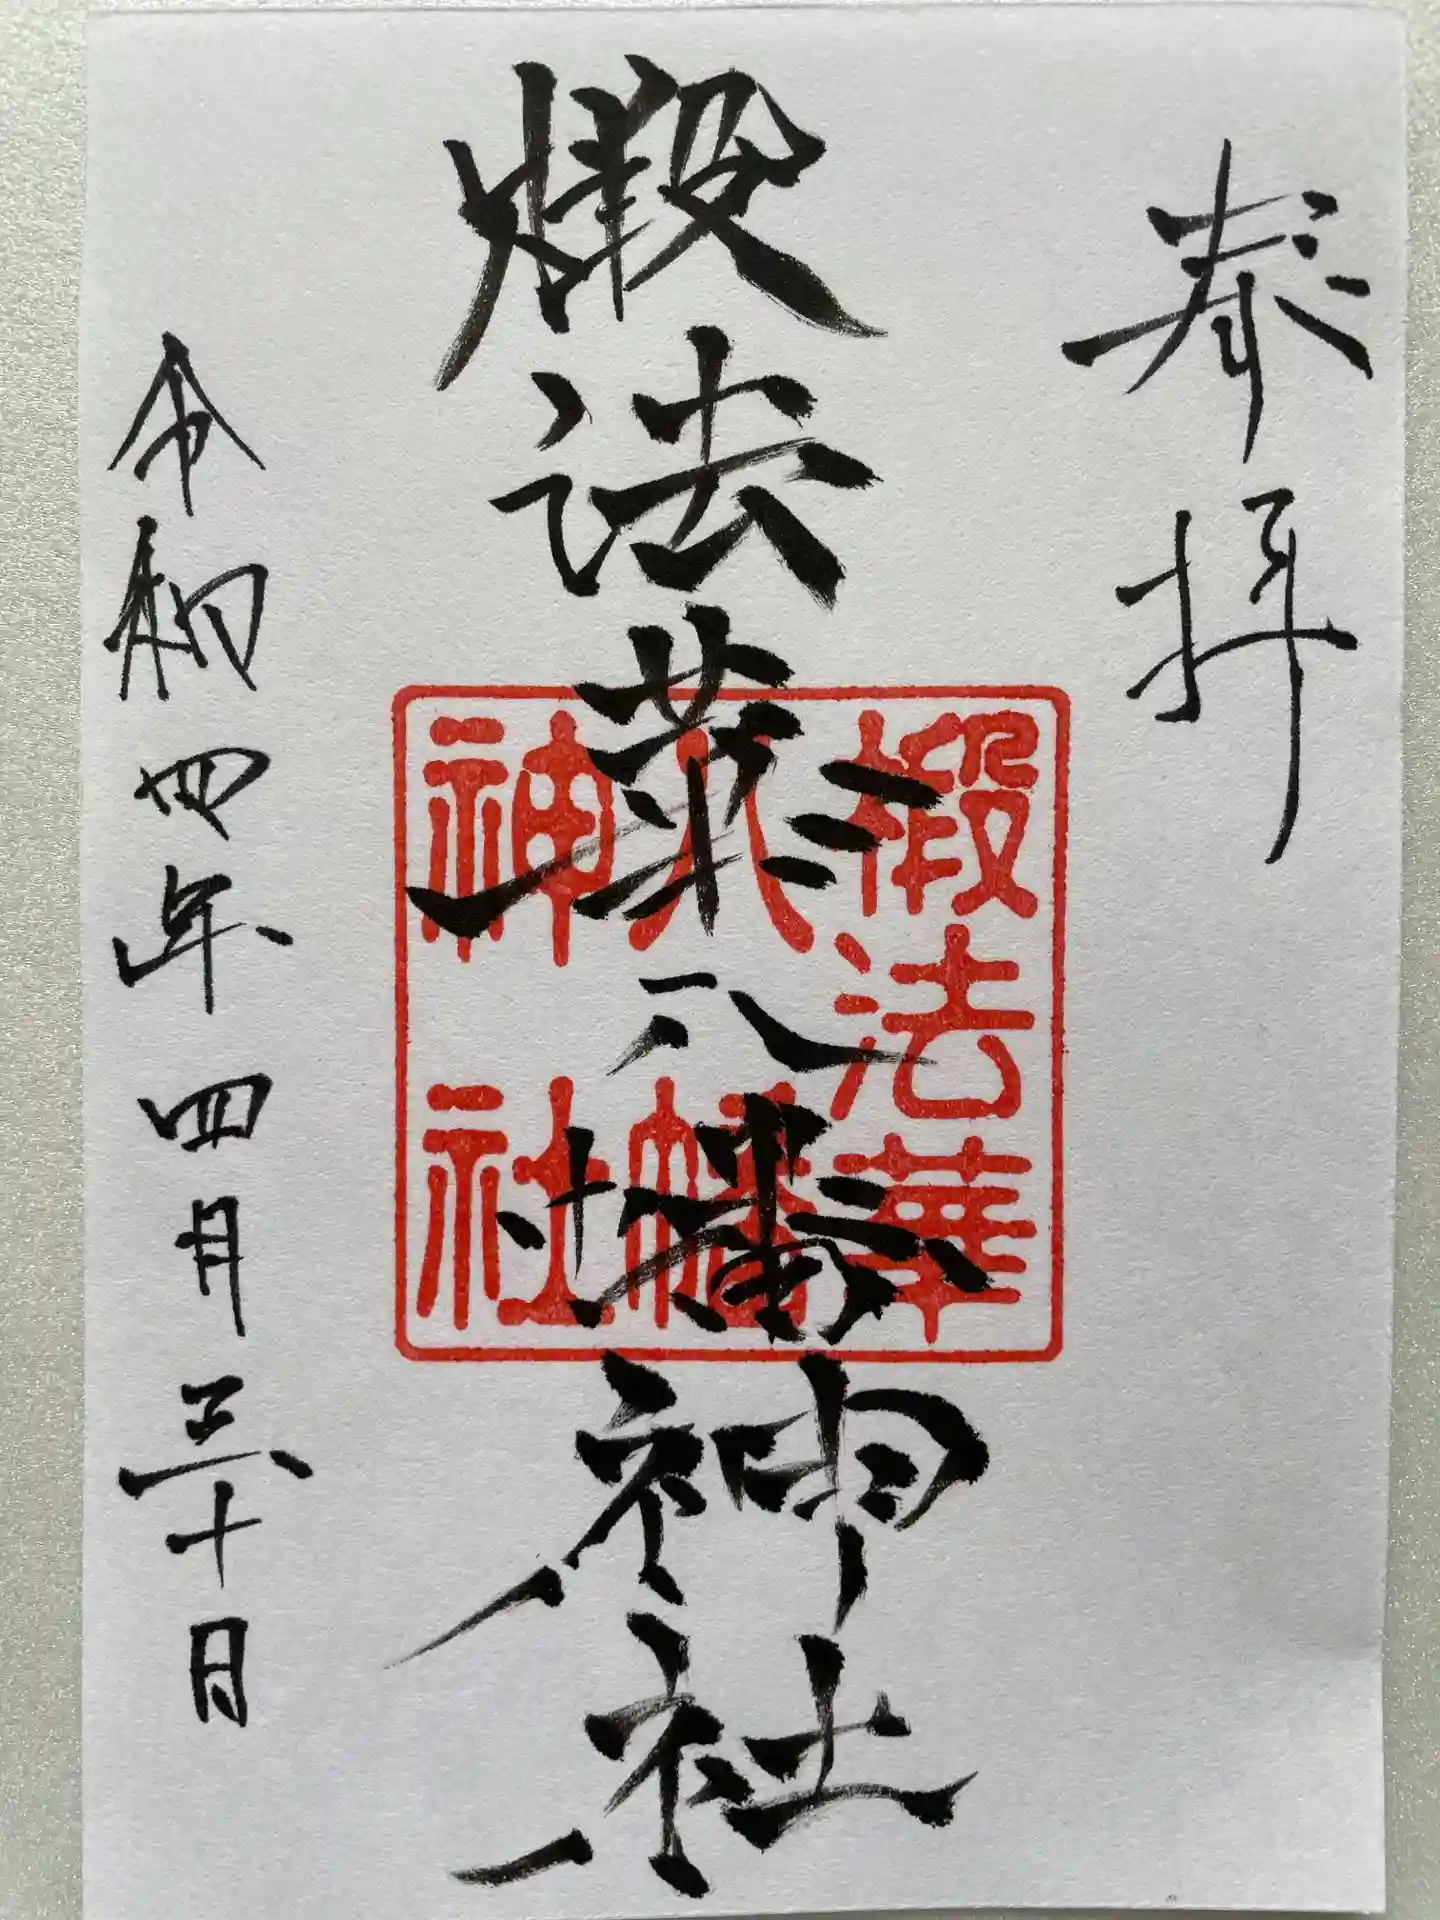 奉拝
椴法華八幡神社
令和四年四月三十日
椴法華
八幡
神社